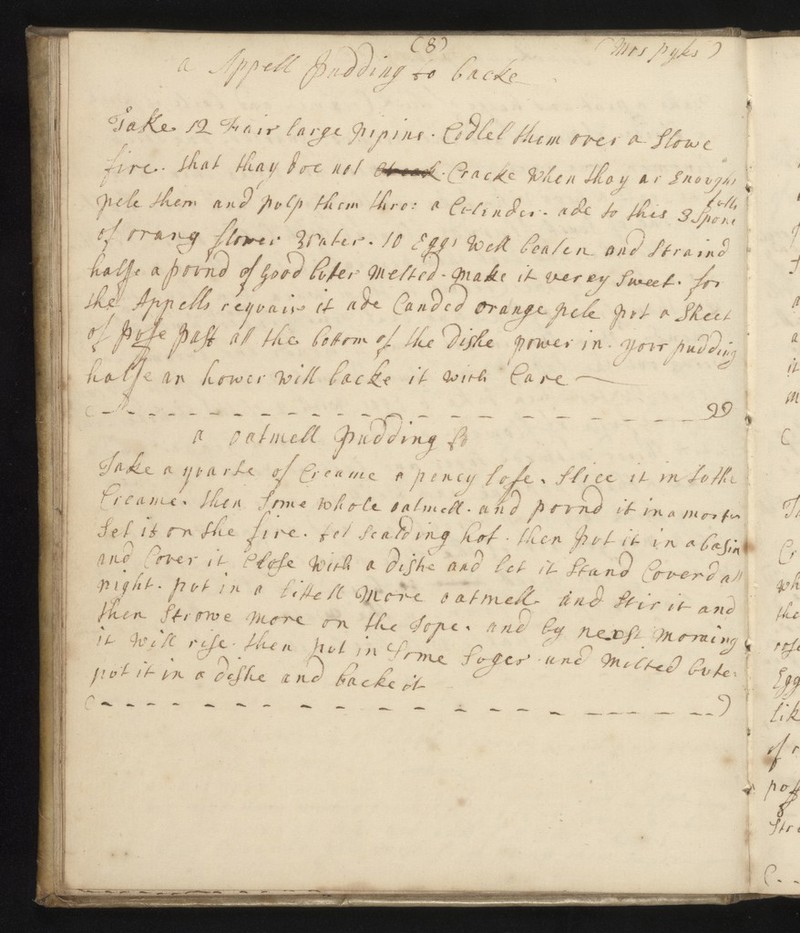 (8)
(Mrs pyks)
a Appell pudding to backe
Take 12 Fair large pipins. Codlel them over a Slowe
fire. that thay doe not Cracke when thay ar Enough
pele them and pulp them thro: a Colinder. ade to this 3 Spone
fulls
of orang flower Water. 10 Eggs Well beaten and Straind
halfe a pound of good buter melted. make it verey Sweet. for
the Appells requair it ade Canded orange pele put a Sheet
of pufe past at the bottom of the Dishe power in. your pudding
halfe an hower will backe it with Care
a oatmell pudding
Take a quarte of Creame a peney lofe. Slice it in to the
Creame. then Some whole oatmell. and pound it in a morter
Set it on the fire. tel Scalding hot. then put it in a basin
and Cover it Close with a dishe and let it Stand Coverd all
night. put in a littell more oatmell and Stir it and
then Strowe more on the Tope. and by next morning
it will rise. then put in Some Suger and Milted buter
put it in a dishe and backe it